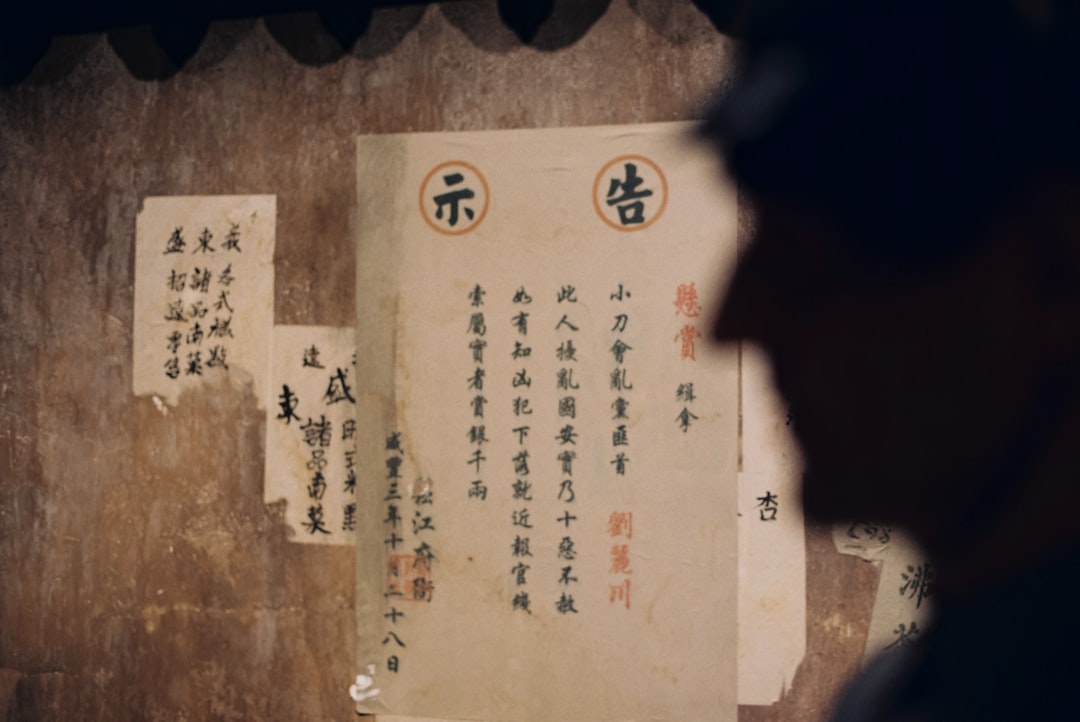 告示
懸賞 緝拿
小刀會亂黨匪首 劉麗川
此人擾亂國安實乃十惡不赦
如有知凶犯下落就近報官綫
索屬實者賞銀千兩
松江府衙
咸豐三年十月二十八日
我各式樣
東諸品南
盛招
遠
盛
東諸品南
杏